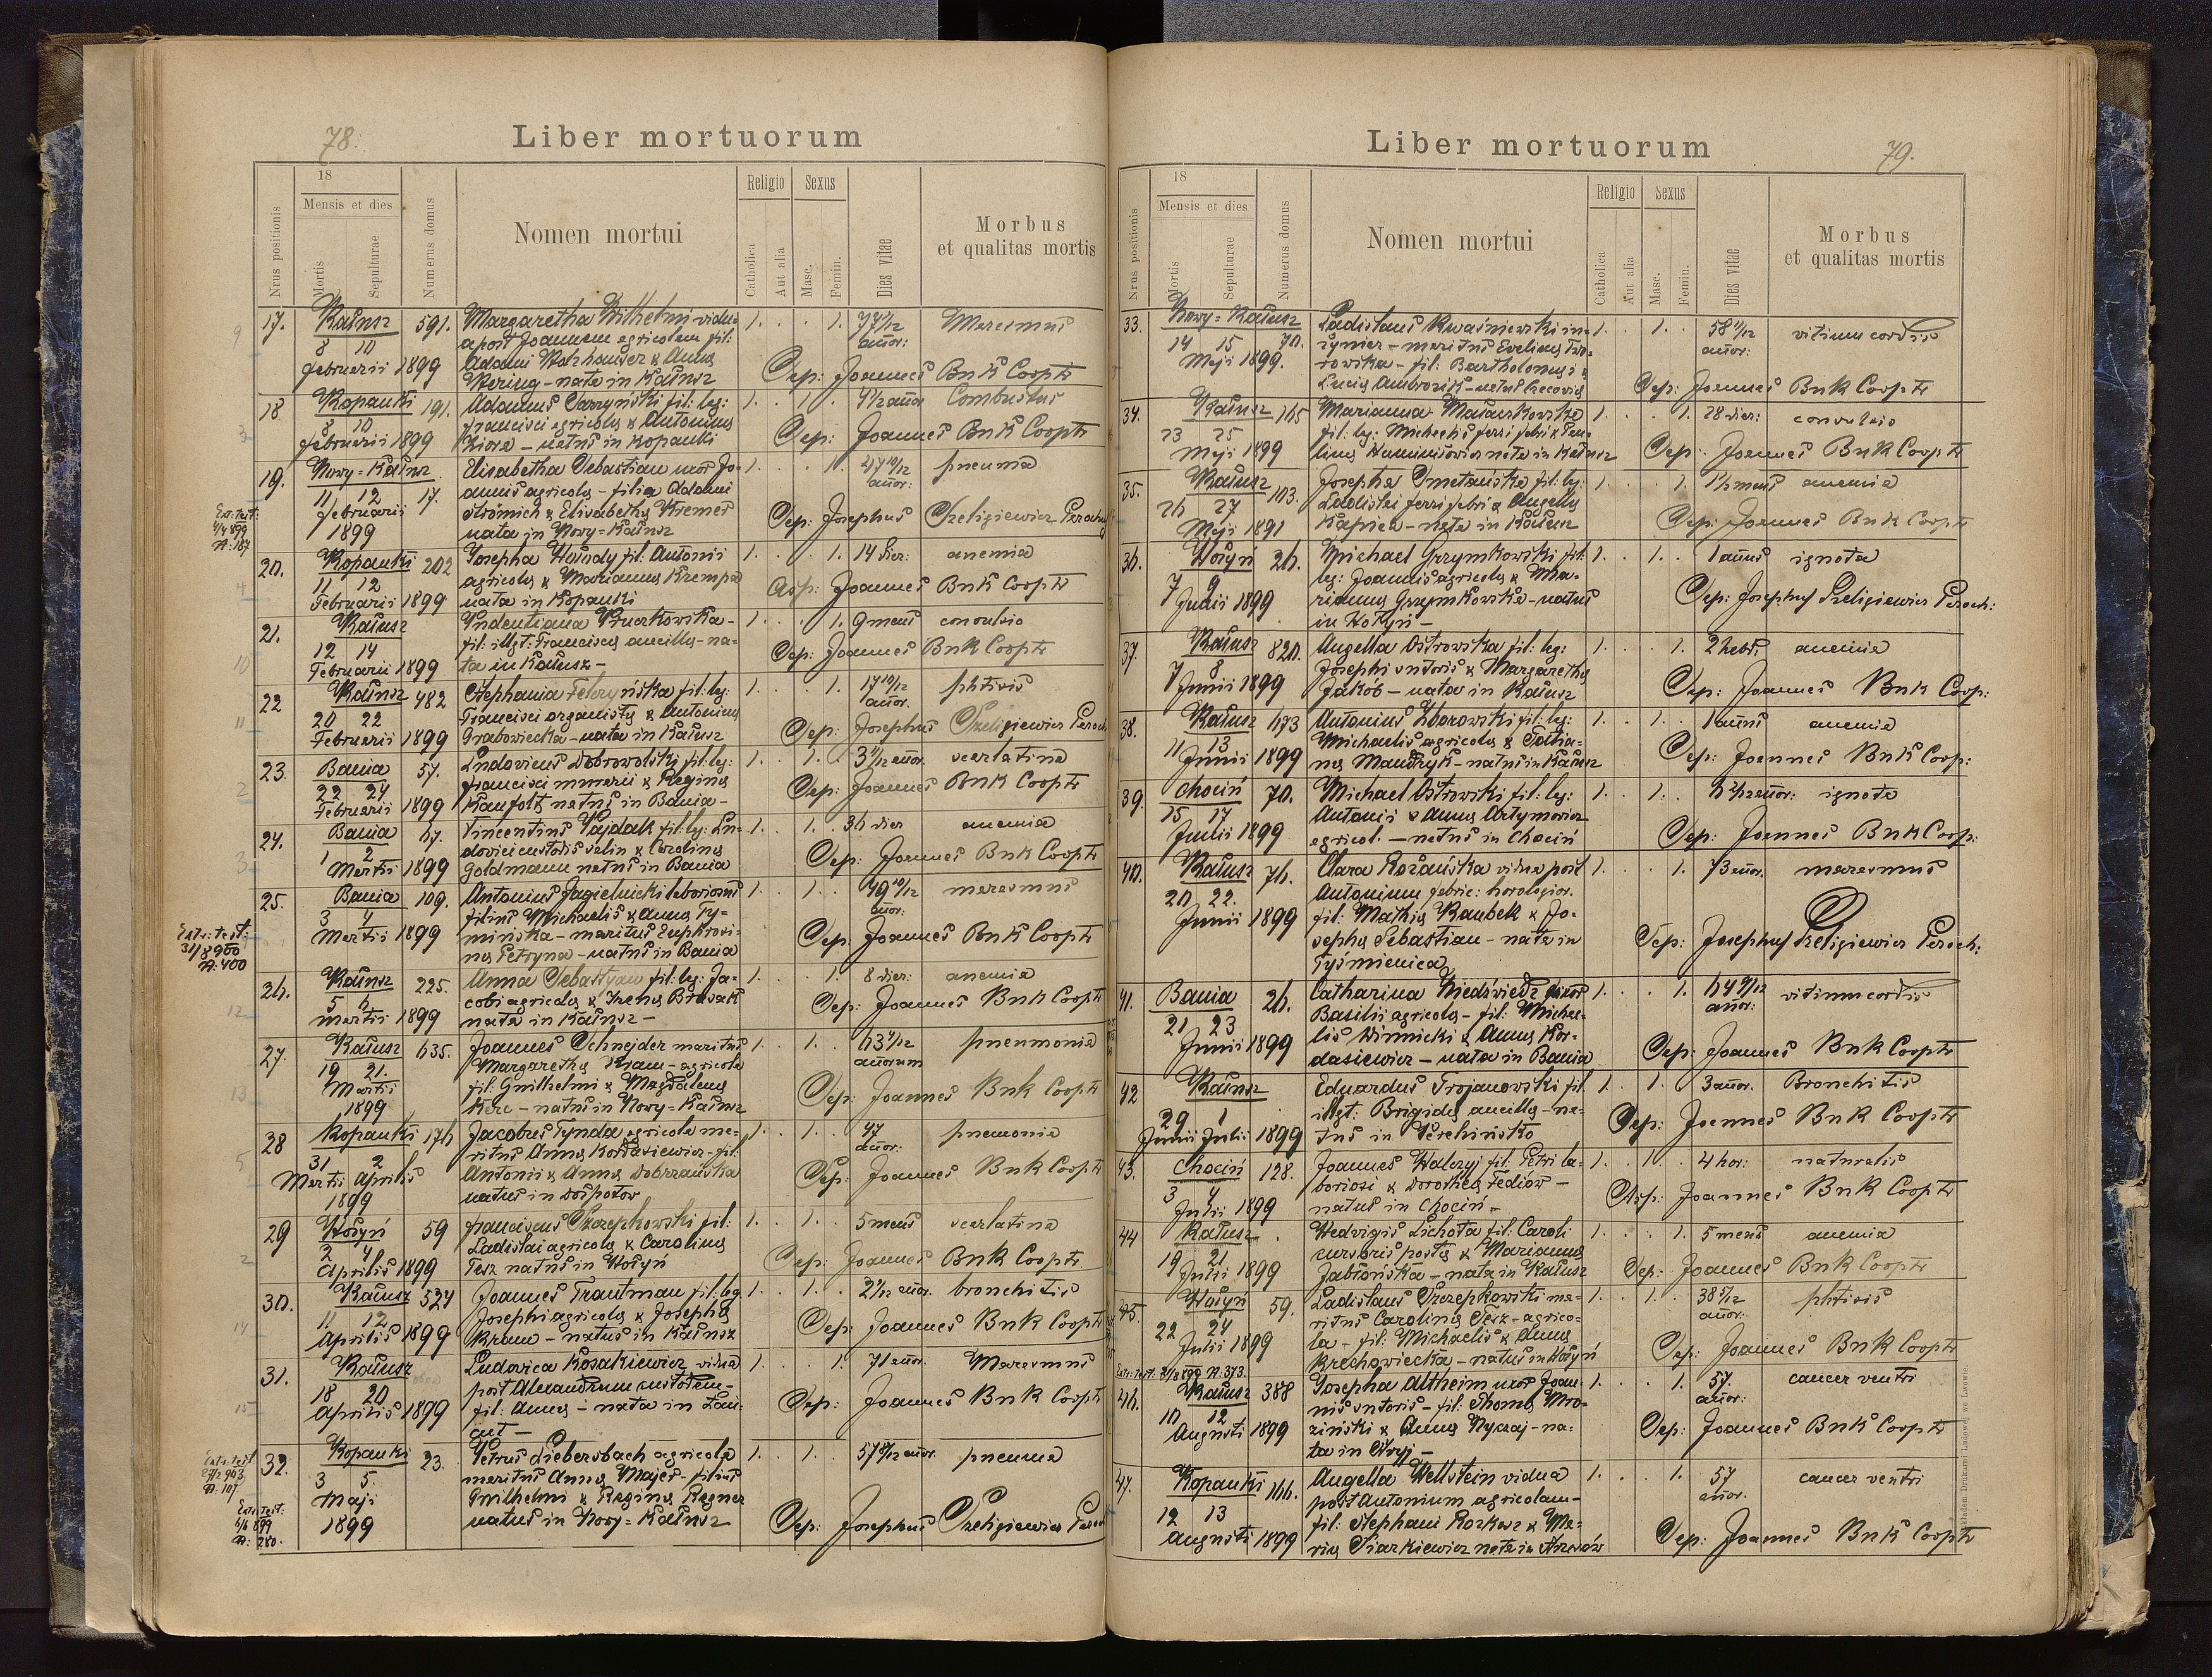 78.
Liber mortuorum
18
Religio Sexus
Mensis et dies
Nrus positionis
Mortis
Sepulturae
Numerus domus
Nomen mortui
Catholica
Aut alia
Masc.
Femin.
Dies vitae
Morbus
et qualitas mortis
17. Kałusz 591. Margaretha Wilhelmi vidu= 1. . . 1. 77 1/12 Maresmus
8 10 a post Joannem agricolam fil: annor:
februarii 1899 Adami & Anna Sep: Joannes Bnk Coopr
nata in Kałusz
18 Kopanki 191. Adamus fil: leg: 1. . 1. . Combustus
8 10 francisci agricolę & Antoninę
februarii 1899 natus in Kopanki Sep: Joannes Bnk Coopr
19. Nowy-Kałusz Elisabetha Sebastian uxor Jo= 1. . . 1. 47 10/12 pneuma
11 12 17. annis agricolę - filia Adami annor:
februarii Strömich & Elisabethę Kremer Sep: Josephus Szeligiewicz Paroch
1899 nata in Nowy-Kałusz
20. Kopanki 202 Josepha fil: Antonii 1. . . 1. 14 dier: anemia
11 12 agricolę & Mariannę Krempa
Februarii 1899 nata in Kopanki Joannes Bnk Coopr
21. Kałusz 1. . . 1. 9 mens convulsio
12 14 fil: illgt: Franciscę ancillę - na=
Februarii 1899 ta in Kałusz - Sep: Joannes Bnk Coopr
22 Kałusz 482 Stephania Felczyńska fil: leg: 1. . . 1. 17 10/12 phtisis
20 22 Francisci organistę & Antoninę annor.
Februarii 1899 Grabowiecka - nata in Kałusz Sep: Josephus Szeligiewicz Paroch
23. Bania 57. Ludovicus Dobrowolski fil: leg: 1. . 1. . 3 1/12 annor. scarlatina
22 24 francisci & Reginę
Februarii 1899 Kaufolt natus in Bania - Sep: Joannes Bnk Coopr
24. Bania 67. Vincentius Pajdak fil: leg: Lu= 1. . 1. . 36 dier anemia
1 2 dovici custodis salin & Carolinę
Martii 1899 Goldmann natus in Bania Sep: Joannes Bnk Coopr
25. Bania 109. Antonius Jagielnicki laboriosus 1. . 1. . 49 10/12 maresmus
3 4 filius Michaelis & Annę Ty= annor:
Martii 1899 mińska - maritus Euphrosi= Sep: Joannes Bnk Coopr
nę Petryna - natus in Bania
26. Kałusz 225. Anna Sebastyan fil: leg: Ja= 1. . . 1. 8 dier: anemia
5 6 cobi agricolę & Irenę
Martii 1899 nata in Kałusz - Sep: Joannes Bnk Coopr
27. Kałusz 635. Joannes Schnejder maritus 1. . 1. . 63 1/12 pneumonia
19 21. Margarethę Kram - agricola annorum
Martii fil: Guilhelmi & Magdalenę Sep: Joannes Bnk Coopr
1899 natus in Nowy-Kałusz
28 Kopanki 176 Jacobus Tynda agricola ma= 1. . 1. . 47 pneumonia
31 2 ritus Annę Kordasiewicz - fil: annor:
Martii Aprilis Antonii & Annę Dobrzańska Sep: Joannes Bnk Coopr
1899 natus in Dospotow
29 Hołyń 59 franciscus Szczepkowski fil: 1. . 1. . 5 mens scarlatina
2 4 Ladislai agricolę & Carolinę
Aprilis 1899 Tesz natus in Hołyń Sep: Joannes Bnk Coopr
30. Kałusz 524 Joannes Trautman fil: leg 1. . 1. . 2 1/12 annor. bronchitis
11 12 Josephi agricolę & Josephę
Aprilis 1899 Kram - natus in Kałusz Sep: Joannes Bnk Coopr
31. Kałusz Ludovica Kosakiewicz vidua 1. . . 1. 71 annor. Maresmus
18 20 post Alexandrum custodem -
Aprilis 1899 fil: Annę - nata in Łań= Sep: Joannes Bnk Coopr
cut -
32. Kopanki 23. Petrus Liebersbach agricola 1. . 1. . pneuma
3 5. maritus Annę Majer - filius
Maji Guilhelmi & Reginę Regner
1899 natus in Nowy-Kałusz Sep: Josephus Szeligiewicz Paroch
Extr: test:
4/4 899
N: 187
Extr: test:
31/8 900
N: 400
Extr: test
N: 107
Extr: test:
6/6 899
N: 280.
79.
Liber mortuorum
18
Religio Sexus
Mensis et dies
Nrus positionis
Mortis
Sepulturae
Numerus domus
Nomen mortui
Catholica
Aut alia
Masc.
Femin.
Dies vitae
Morbus
et qualitas mortis
33. Nowy-Kałusz Ladislaus Kwaśniewski in= 1. . 1. . 58 1/12 vitium cordis
14 15 70. żynier - maritus Evelinę annor:
Maji 1899. fil: Bartholomaei &
Lucię Ambrozik - natus Sep: Joannes Bnk Coopr
34. Kałusz 165 Marianna 1. . . 1. 28 dier: convulsio
23 25 fil: leg: Michaelis ferri fabri & Pau=
Maji 1899 linę nata in Kałusz Sep: Joannes Bnk Coopr
35. Kałusz 103. Josepha Smetańska fil: leg: 1. . . 1. 1 1/2 mens anemia
26 27 Ladislai ferri fabri & Angelę
Maji 1891 nata in Kałusz Sep: Joannes Bnk Coopr
36. Hołyń 26. Michael Grzymkowski fil: 1. . 1. . 1 annus ignota
7 9 leg: Joannis agricolę & Ma=
Junii 1899 riannę Grzymkowska - natus Sep: Josephus Szeligiewicz Paroch:
in Hołyń -
37. Kałusz 820. Angella Ostrowska fil: leg: 1. . . 1. 2 hebd. anemia
7 8 Josephi sutoris & Margarethę
Junii 1899 Jakób - nata in Kałusz Sep: Joannes Bnk Coop:
38. Kałusz 673 Antonius Zborowski fil: leg: 1. . 1. . 1 annus anemia
11 13 Michaelis agricolę & Tatia=
Junii 1899 nę Mandryk - natus in Kałusz Sep: Joannes Bnk Coop:
39. Chocin 70. Michael Ostrowski fil: leg: 1. . 1. . ignota
15 17 Antonii & Annę Artymowicz
Junii 1899 agricol. - natus in Chocin Sep: Joannes Bnk Coop:
40. Kałusz 76. Clara Rożańska vidua post 1. . . 1. 73 annor. maresmus
20 22. Antonium fabric: horologior.
Junii 1899 fil: Mathię Kaubek & Jo=
sephę Sebastian - nata in Sep: Josephus Szeligiewicz Paroch:
Tyśmienica
41. Bania 26. Catharina Niedźwiedź uxor 1. . . 1. 64 9/12 vitium cordis
21 23 Basilii agricolę - fil: Michae= annor:
Junii 1899 lis Winnicki & Annę Kor=
dasiewicz - nata in Bania Sep: Joannes Bnk Coopr
42 Kałusz Eduardus Trojanowski fil 1. . 1. . 3 annor. Bronchitis
29 1 illgt: Brigidę ancillę - na=
Junii Julii 1899 tus in Perehińsko Sep: Joannes Bnk Coopr
43. Chocin 128. Joannes Walczyj fil: Petri la= 1. . 1. . 4 hor: naturalis
3 4 boriosi & Dorotheę Fediów -
Julii 1899 natus in Chocin - Joannes Bnk Coopr
44 Kałusz . Hedvigis Lichota fil: Caroli 1. . . 1. 5 mens anemia
19 21 cursoris postę & Mariannę
Julii 1899 Jabłońska - nata in Kałusz Sep: Joannes Bnk Coopr
45. Hołyń 59. Ladislaus Szczepkowski ma= 1. . 1. . phtisis
22 24 ritus Carolinę Tesz - agrico= annor:
Julii 1899 la - fil: Michaelis & Annę
Krechowiecka - natus in Hołyń Sep: Joannes Bnk Coopr
Extr: test. N: 373.
46. Kałusz 388 Josepha Altheim uxor Joan= 1. . . 1. 57. cancer ventri
10 12 nis sutoris - fil: Thomę Mro= annor:
Augusti 1899 ziński & Annę - na=
ta in Stryj - Sep: Joannes Bnk Coopr
47. Kopanki 166. Angella Wellstein vidua 1. . . 1. 57 cancer ventri
12 13 post Antonium agricolam - annor.
Augusti 1899 fil: Stephani & Ma=
rię Siarkiewicz nata in Sep: Joannes Bnk Coopr
Nakładem Drukarni Ludowej we Lwowie.